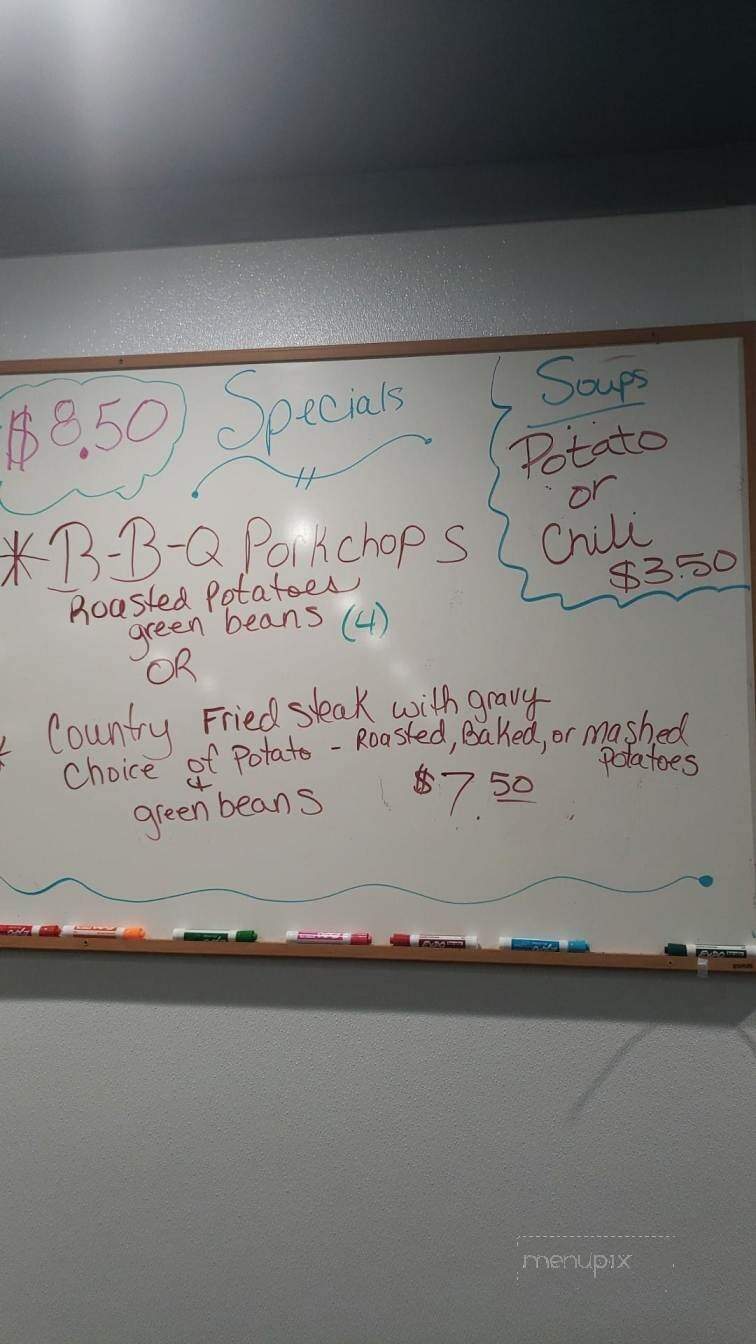 $8.50
Specials
* B-B-Q Porkchops
Roasted Potatoes
green beans (4)
OR
* Country Fried steak with gravy
Choice of Potato - Roasted, Baked, or mashed
Potatoes
&
green beans $7.50
Soups
Potato
or
Chili
$3.50
menupix